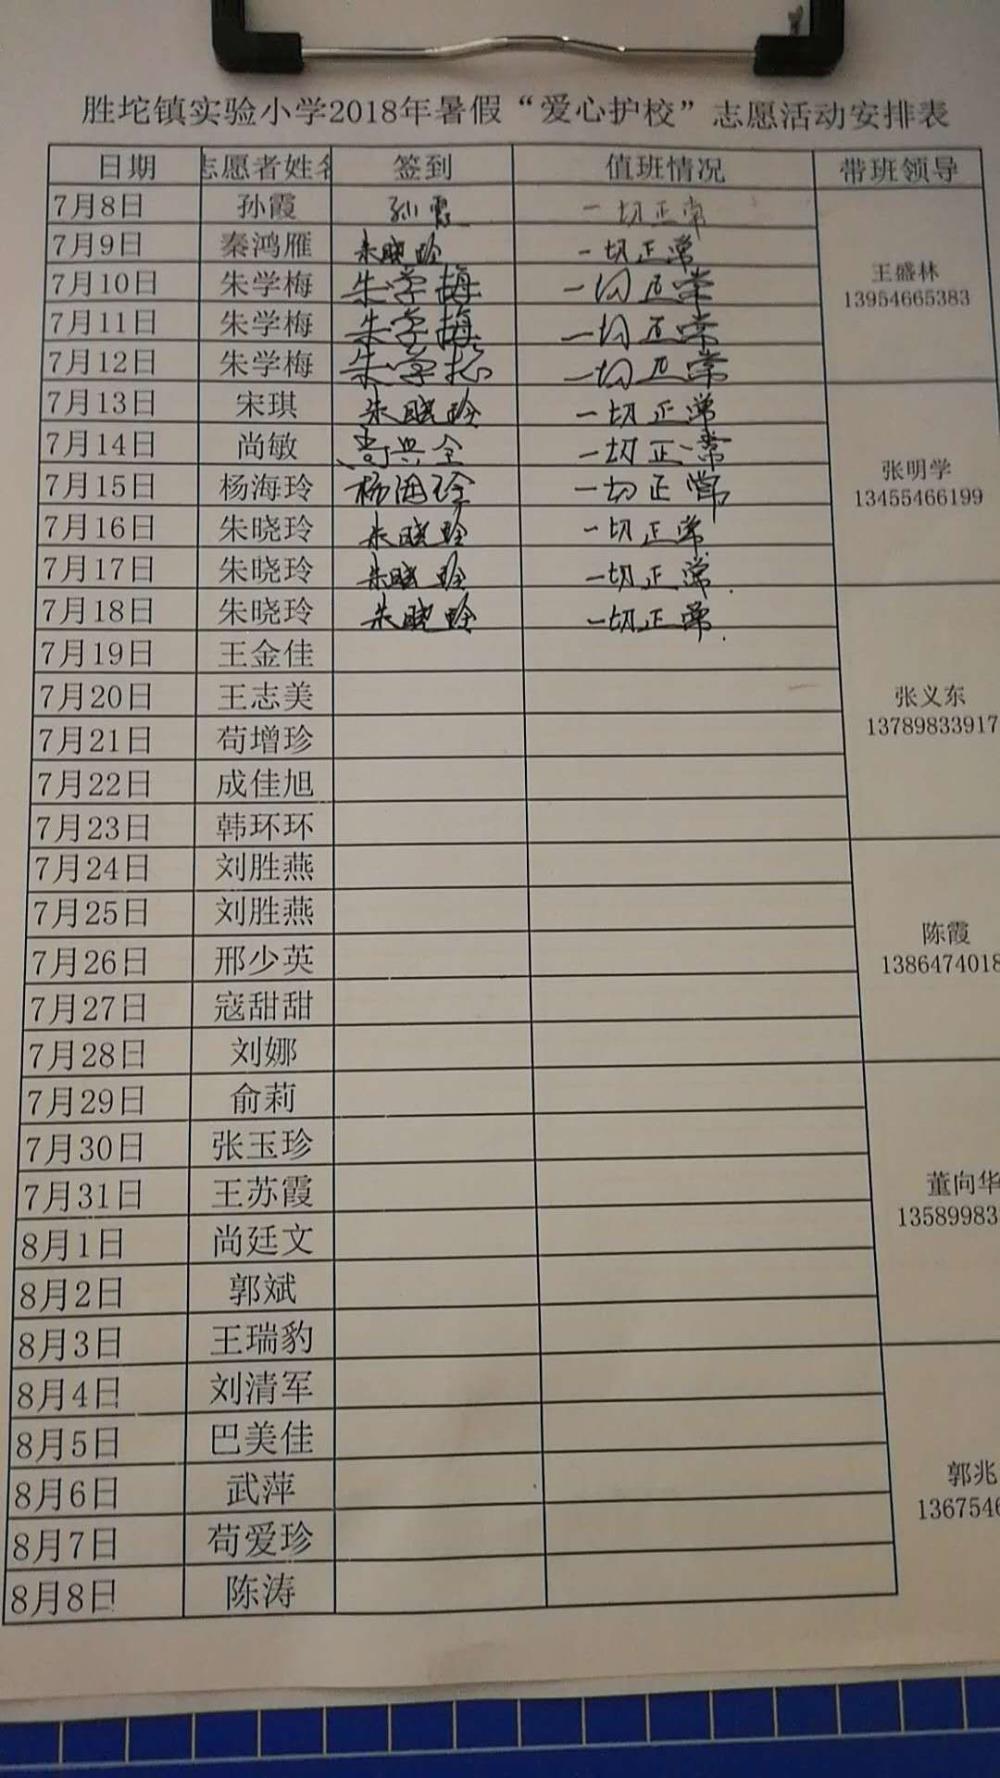 胜坨镇实验小学2018年暑假“爱心护校”志愿活动安排表
日期 志愿者姓名 签到 值班情况 带班领导
7月8日 孙霞 孙霞 一切正常
7月9日 秦鸿雁 朱晓玲 一切正常
王盛林
13954665383
7月10日 朱学梅 朱学梅 一切正常
7月11日 朱学梅 朱学梅 一切正常
7月12日 朱学梅 朱学梅 一切正常
7月13日 宋琪 朱晓玲 一切正常
7月14日 尚敏 尚兴全 一切正常
张明学
13455466199
7月15日 杨海玲 杨海玲 一切正常
7月16日 朱晓玲 朱晓玲 一切正常
7月17日 朱晓玲 朱晓玲 一切正常.
7月18日 朱晓玲 朱晓玲 一切正常.
7月19日 王金佳
7月20日 王志美
张义东
13789833917
7月21日 苟增珍
7月22日 成佳旭
7月23日 韩环环
7月24日 刘胜燕
7月25日 刘胜燕
陈霞
1386474018
7月26日 邢少英
7月27日 寇甜甜
7月28日 刘娜
7月29日 俞莉
7月30日 张玉珍
7月31日 王苏霞
董向华
13589983
8月1日 尚廷文
8月2日 郭斌
8月3日 王瑞豹
8月4日 刘清军
8月5日 巴美佳
8月6日 武萍
郭兆
1367546
8月7日 苟爱珍
8月8日 陈涛